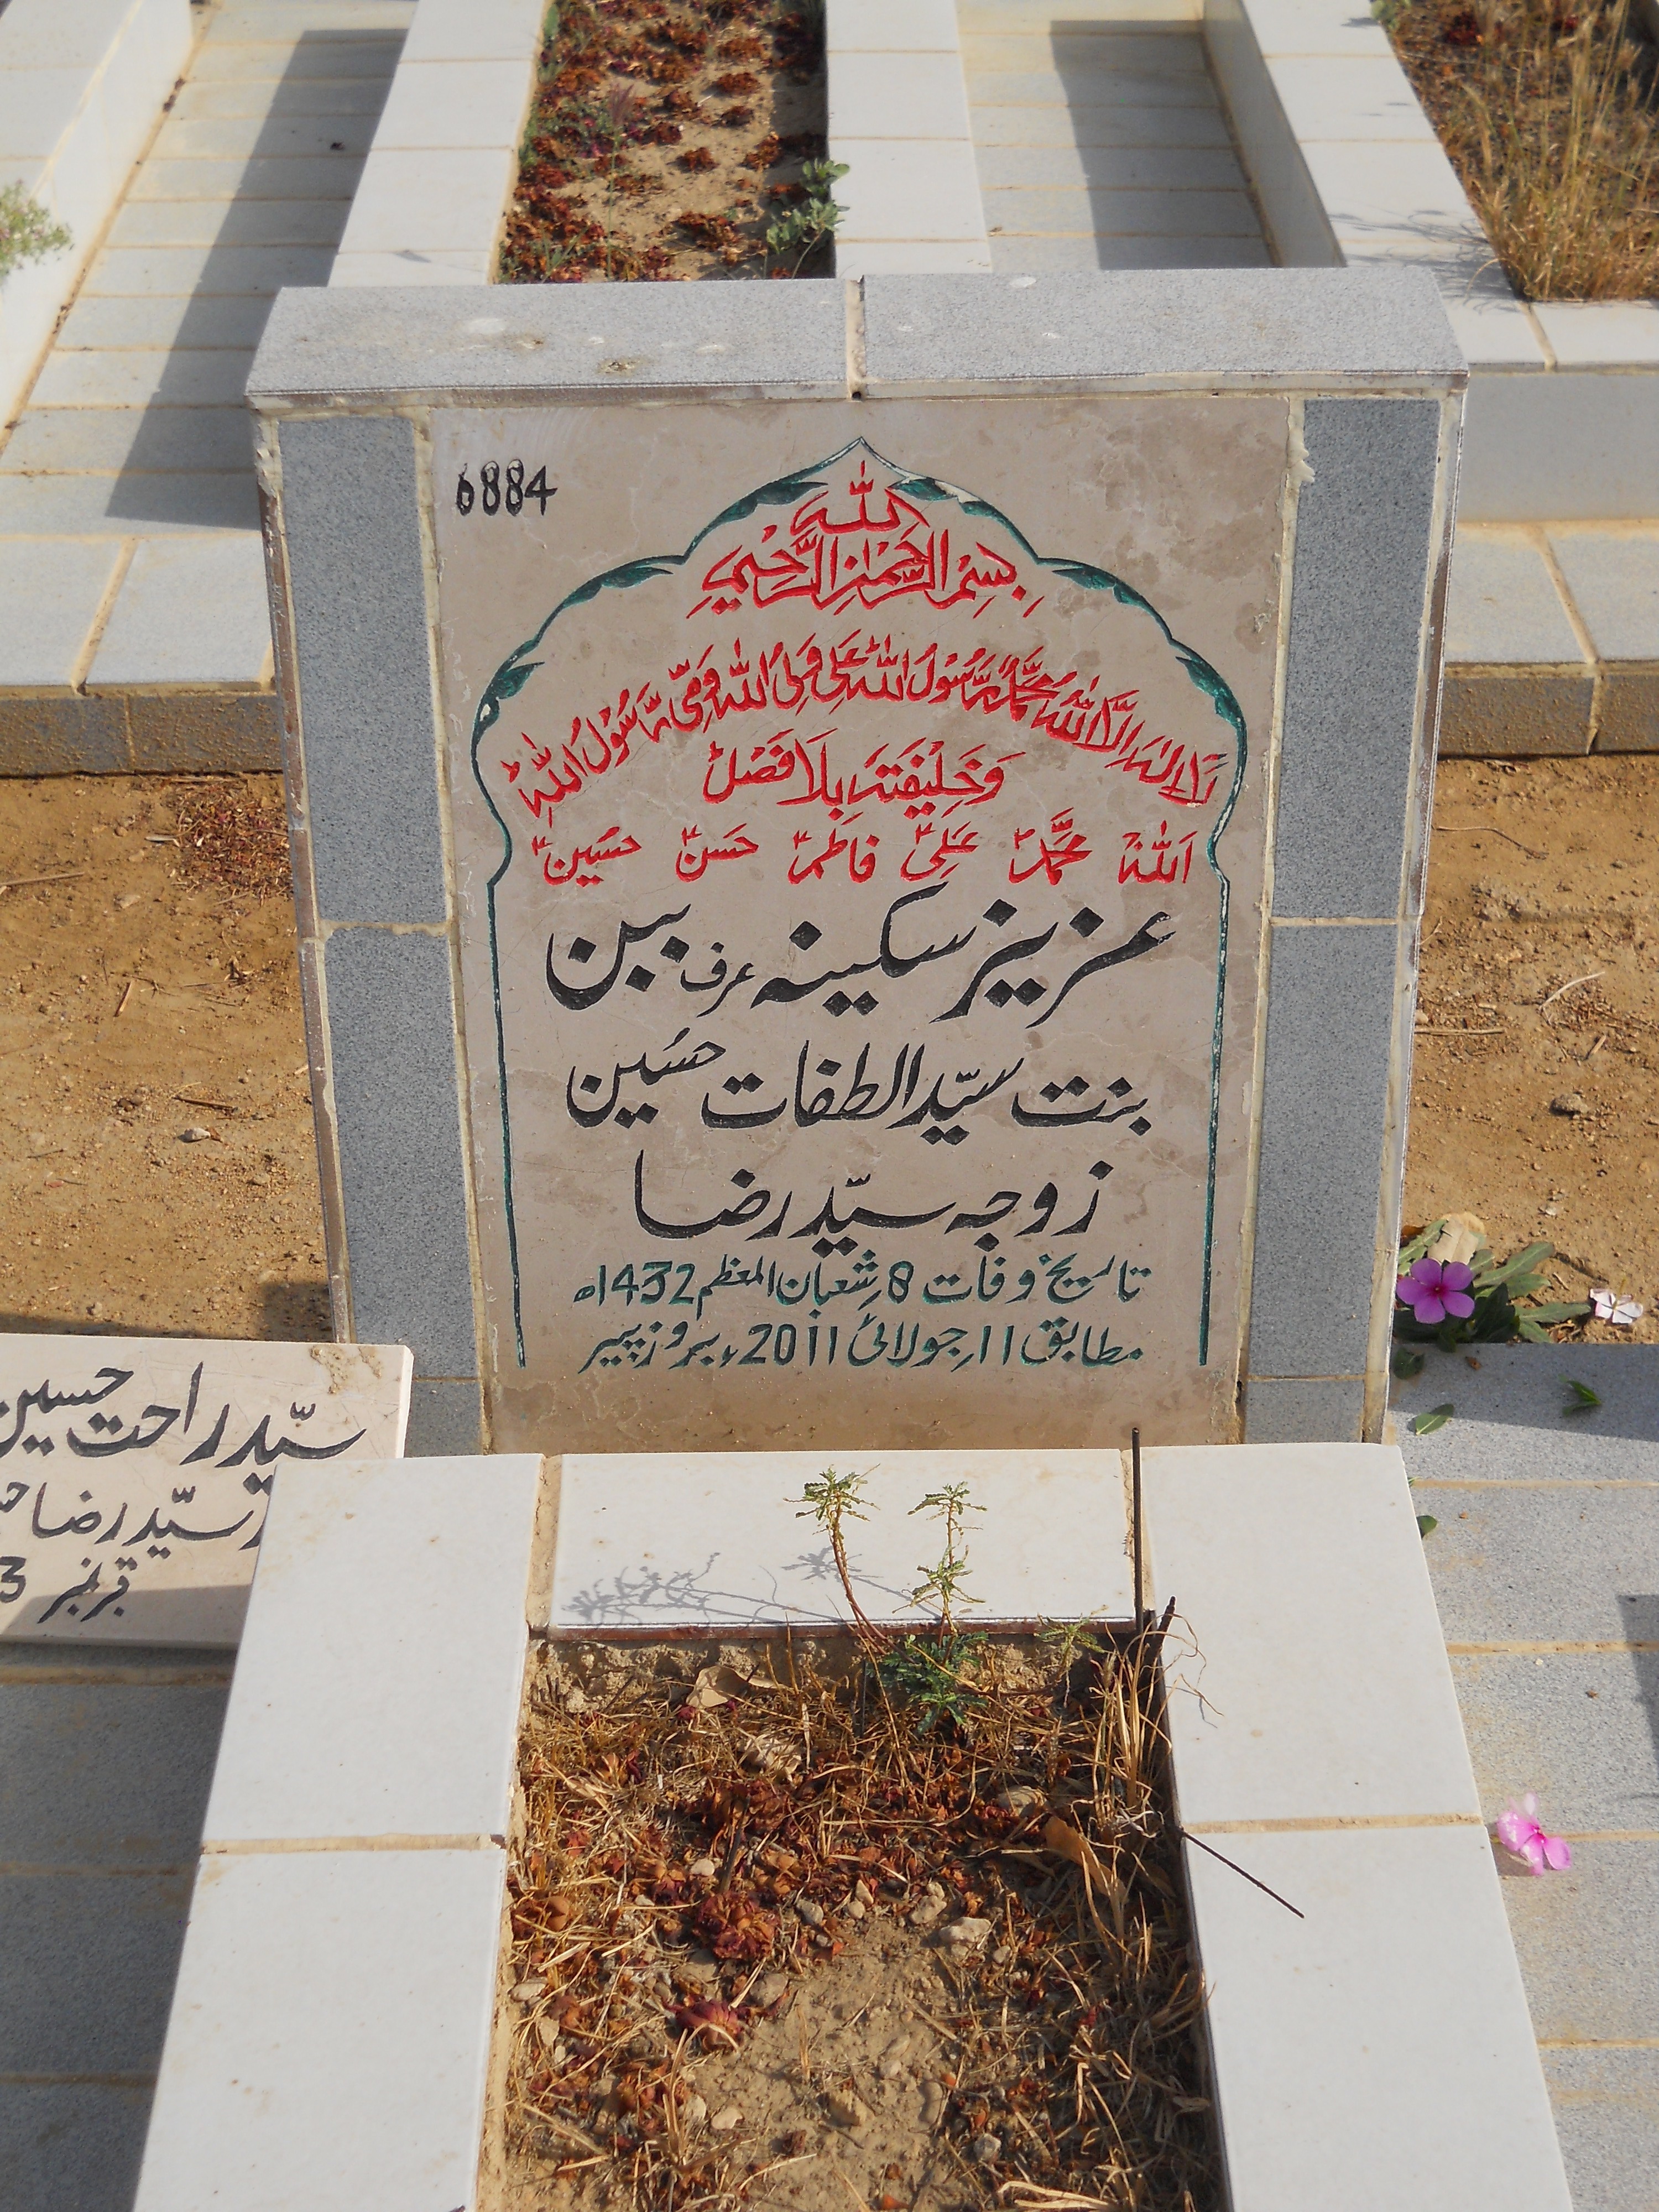 6884
بِسْمِ اللهِ الرَّحْمٰنِ الرَّحِيْمِ
لَا اِلٰهَ اِلَّا اللهُ مُحَمَّدٌ رَّسُوْلُ اللهِ عَلِیٌّ وَلِیُّ اللهِ وَصِیُّ رَسُوْلِ اللهِ
وَخَلِيْفَتَهٗ بِلَا فَصْلٌ
اَللهُ مُحَمَّدؐ عَلِیؑ فاطمہؑ حَسَنؑ حسَینؑ
عزیز سکینہ عرف ببن
بنت سیّد الطفات حسَین
زوجہ سیّد رضا
تاریخ وفات 8 شعبان المعظم 1432ھ
مطابق 11 جولائی 2011ء بروز پیر
سیّد راحت حسین
سیّد رضا
قبر نمبر